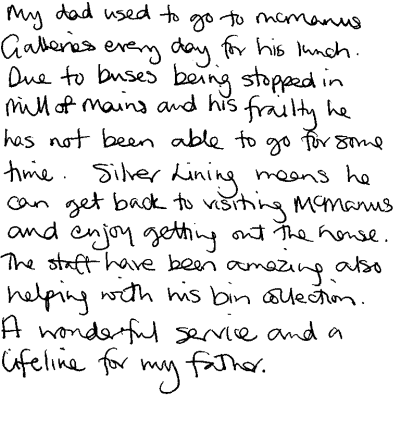 My dad used to go to mcmanus
Galleries every day for his lunch.
Due to buses being stopped in
mill of mains and his frailty he
has not been able to go for some
time. Silver Lining means he
can get back to visiting McManus
and enjoy getting out the house.
The staff have been amazing also
helping with his bin collection.
A wonderful service and a
lifeline for my father.